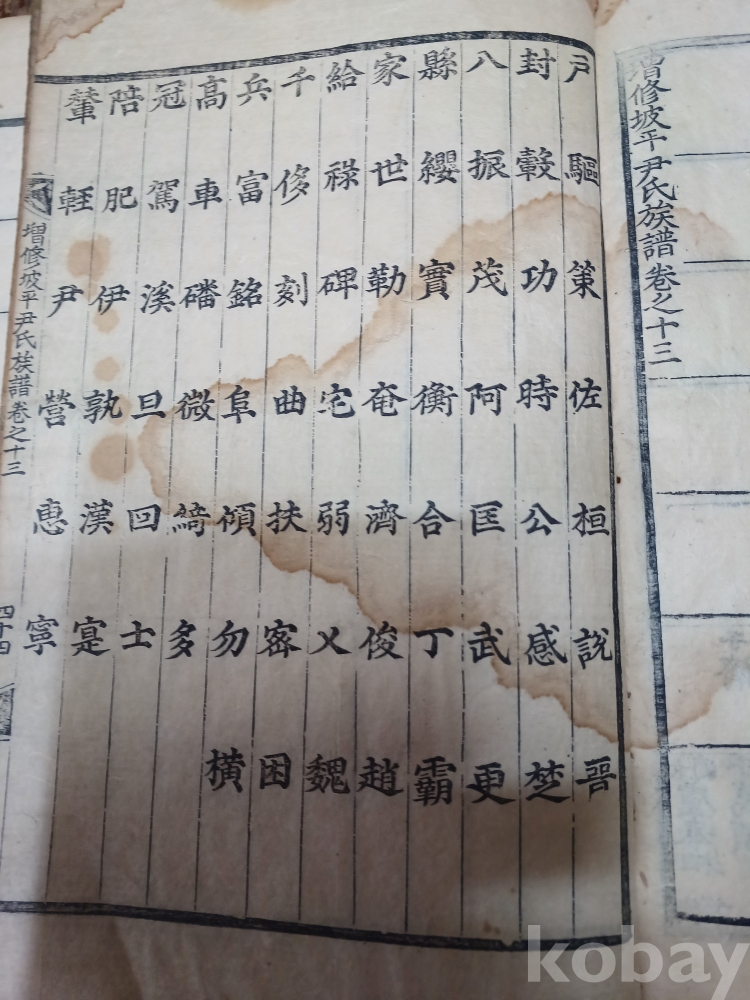 增修坡平尹氏族譜卷之十三
戶封八縣家給千兵高冠陪輦
驅轂振纓世祿侈富車駕肥輕
策功茂實勒碑刻銘磻溪伊尹
佐時阿衡奄宅曲阜微旦孰營
桓公匡合濟弱扶傾綺回漢惠
說感武丁俊乂密勿多士寔寧
晉楚更霸趙魏困橫
增修坡平尹氏族譜卷之十三
四十四
kobay